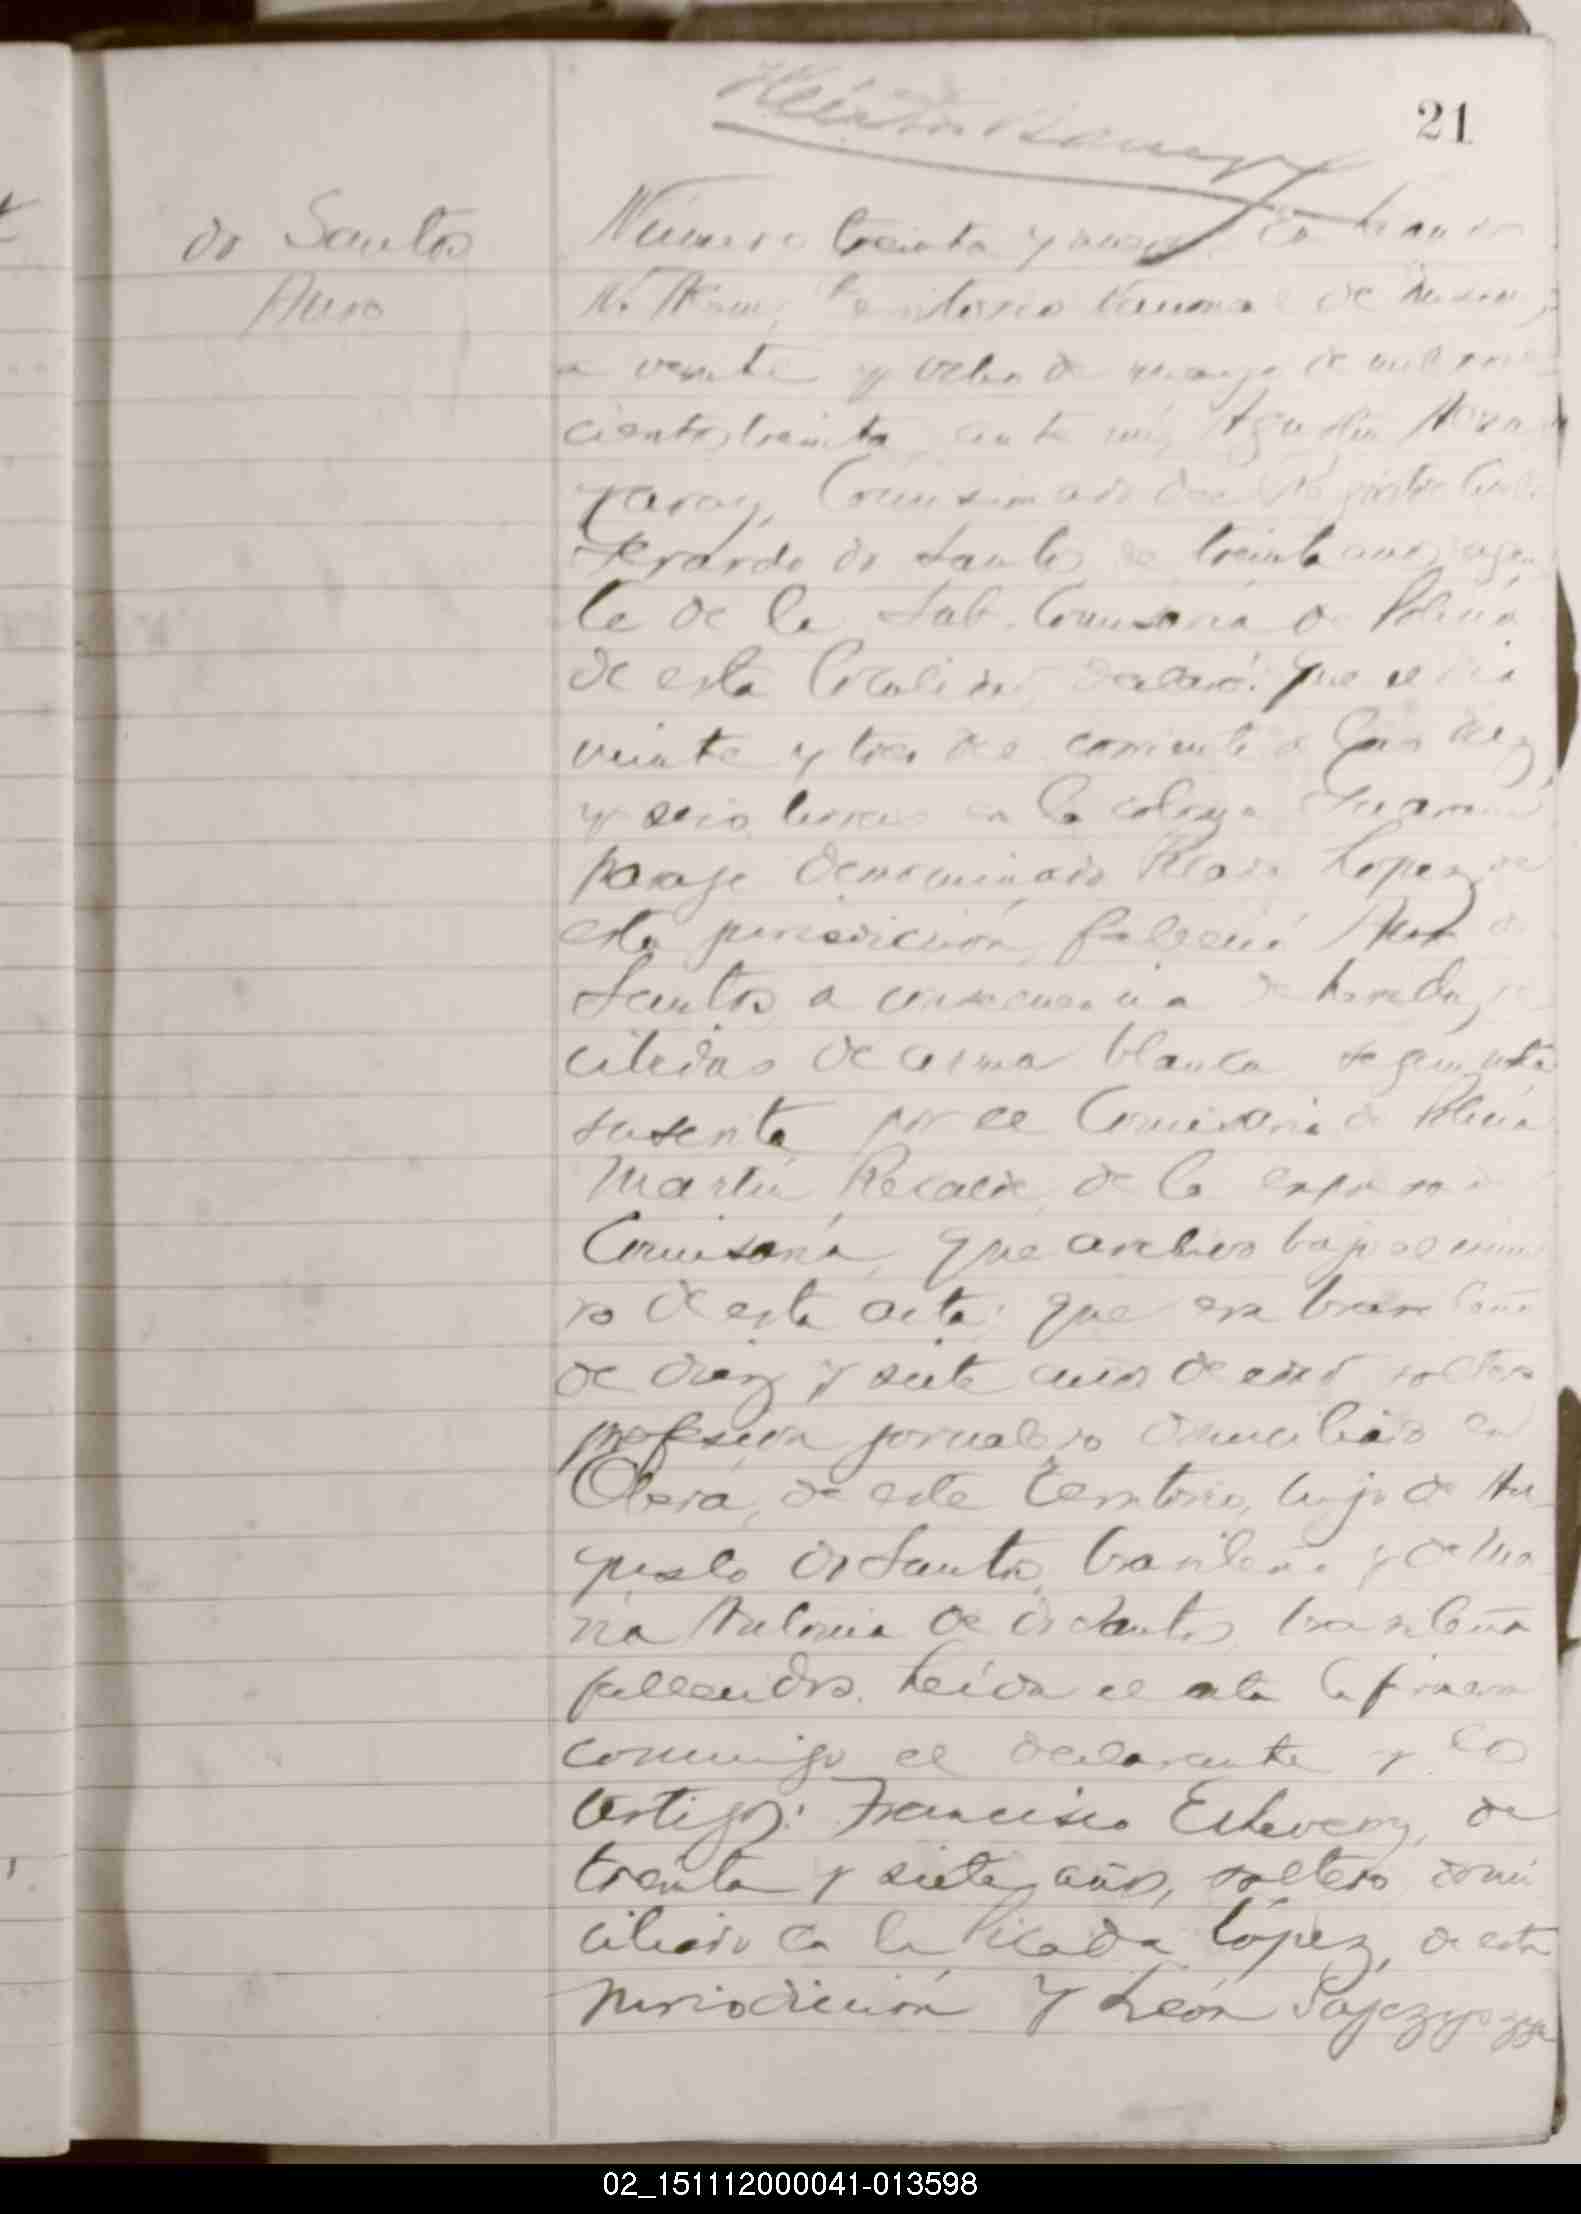 21
do Santos
Auro
Número treinta y nueve. En Leandro
N. Alem, Territorio Nacional de Misiones,
a veinte y ocho de mayo de mil nove
cientos treinta, ante mí, Agustín
garay, Comisionado del Registro Civil
Gerardo do Santos de treinta años, agen
te de la Sub. Comisaría de Policía
de esta localidad, declaró: que el día
veinte y tres del corriente a las diez
y seis horas en la colonia Guaraní
paraje denominado Picada Lopez, de
esta jurisdicción, falleció Auro do
Santos a consecuencia de heridas re
cibidas de arma blanca según nota
suscrita por el Comisario de Policía
Martín Recalde, de la expresada
Comisaría, que archivo bajo el núme
ro de esta acta; que era brasileño
de diez y siete años de edad, soltero
profesión jornalero domiciliado en
Oberá, de este Territorio, hijo de Au
gusto do Santos, brasileño y de Ma
ria Antonia de do Santos, brasileña
fallecidos. Leída el acta la firmaron
conmigo el declarante y los
testigos: Francisco Echeverry, de
treinta y siete años, soltero domi
ciliado en la Picada López, de esta
jurisdicción y León
02_151112000041-013598